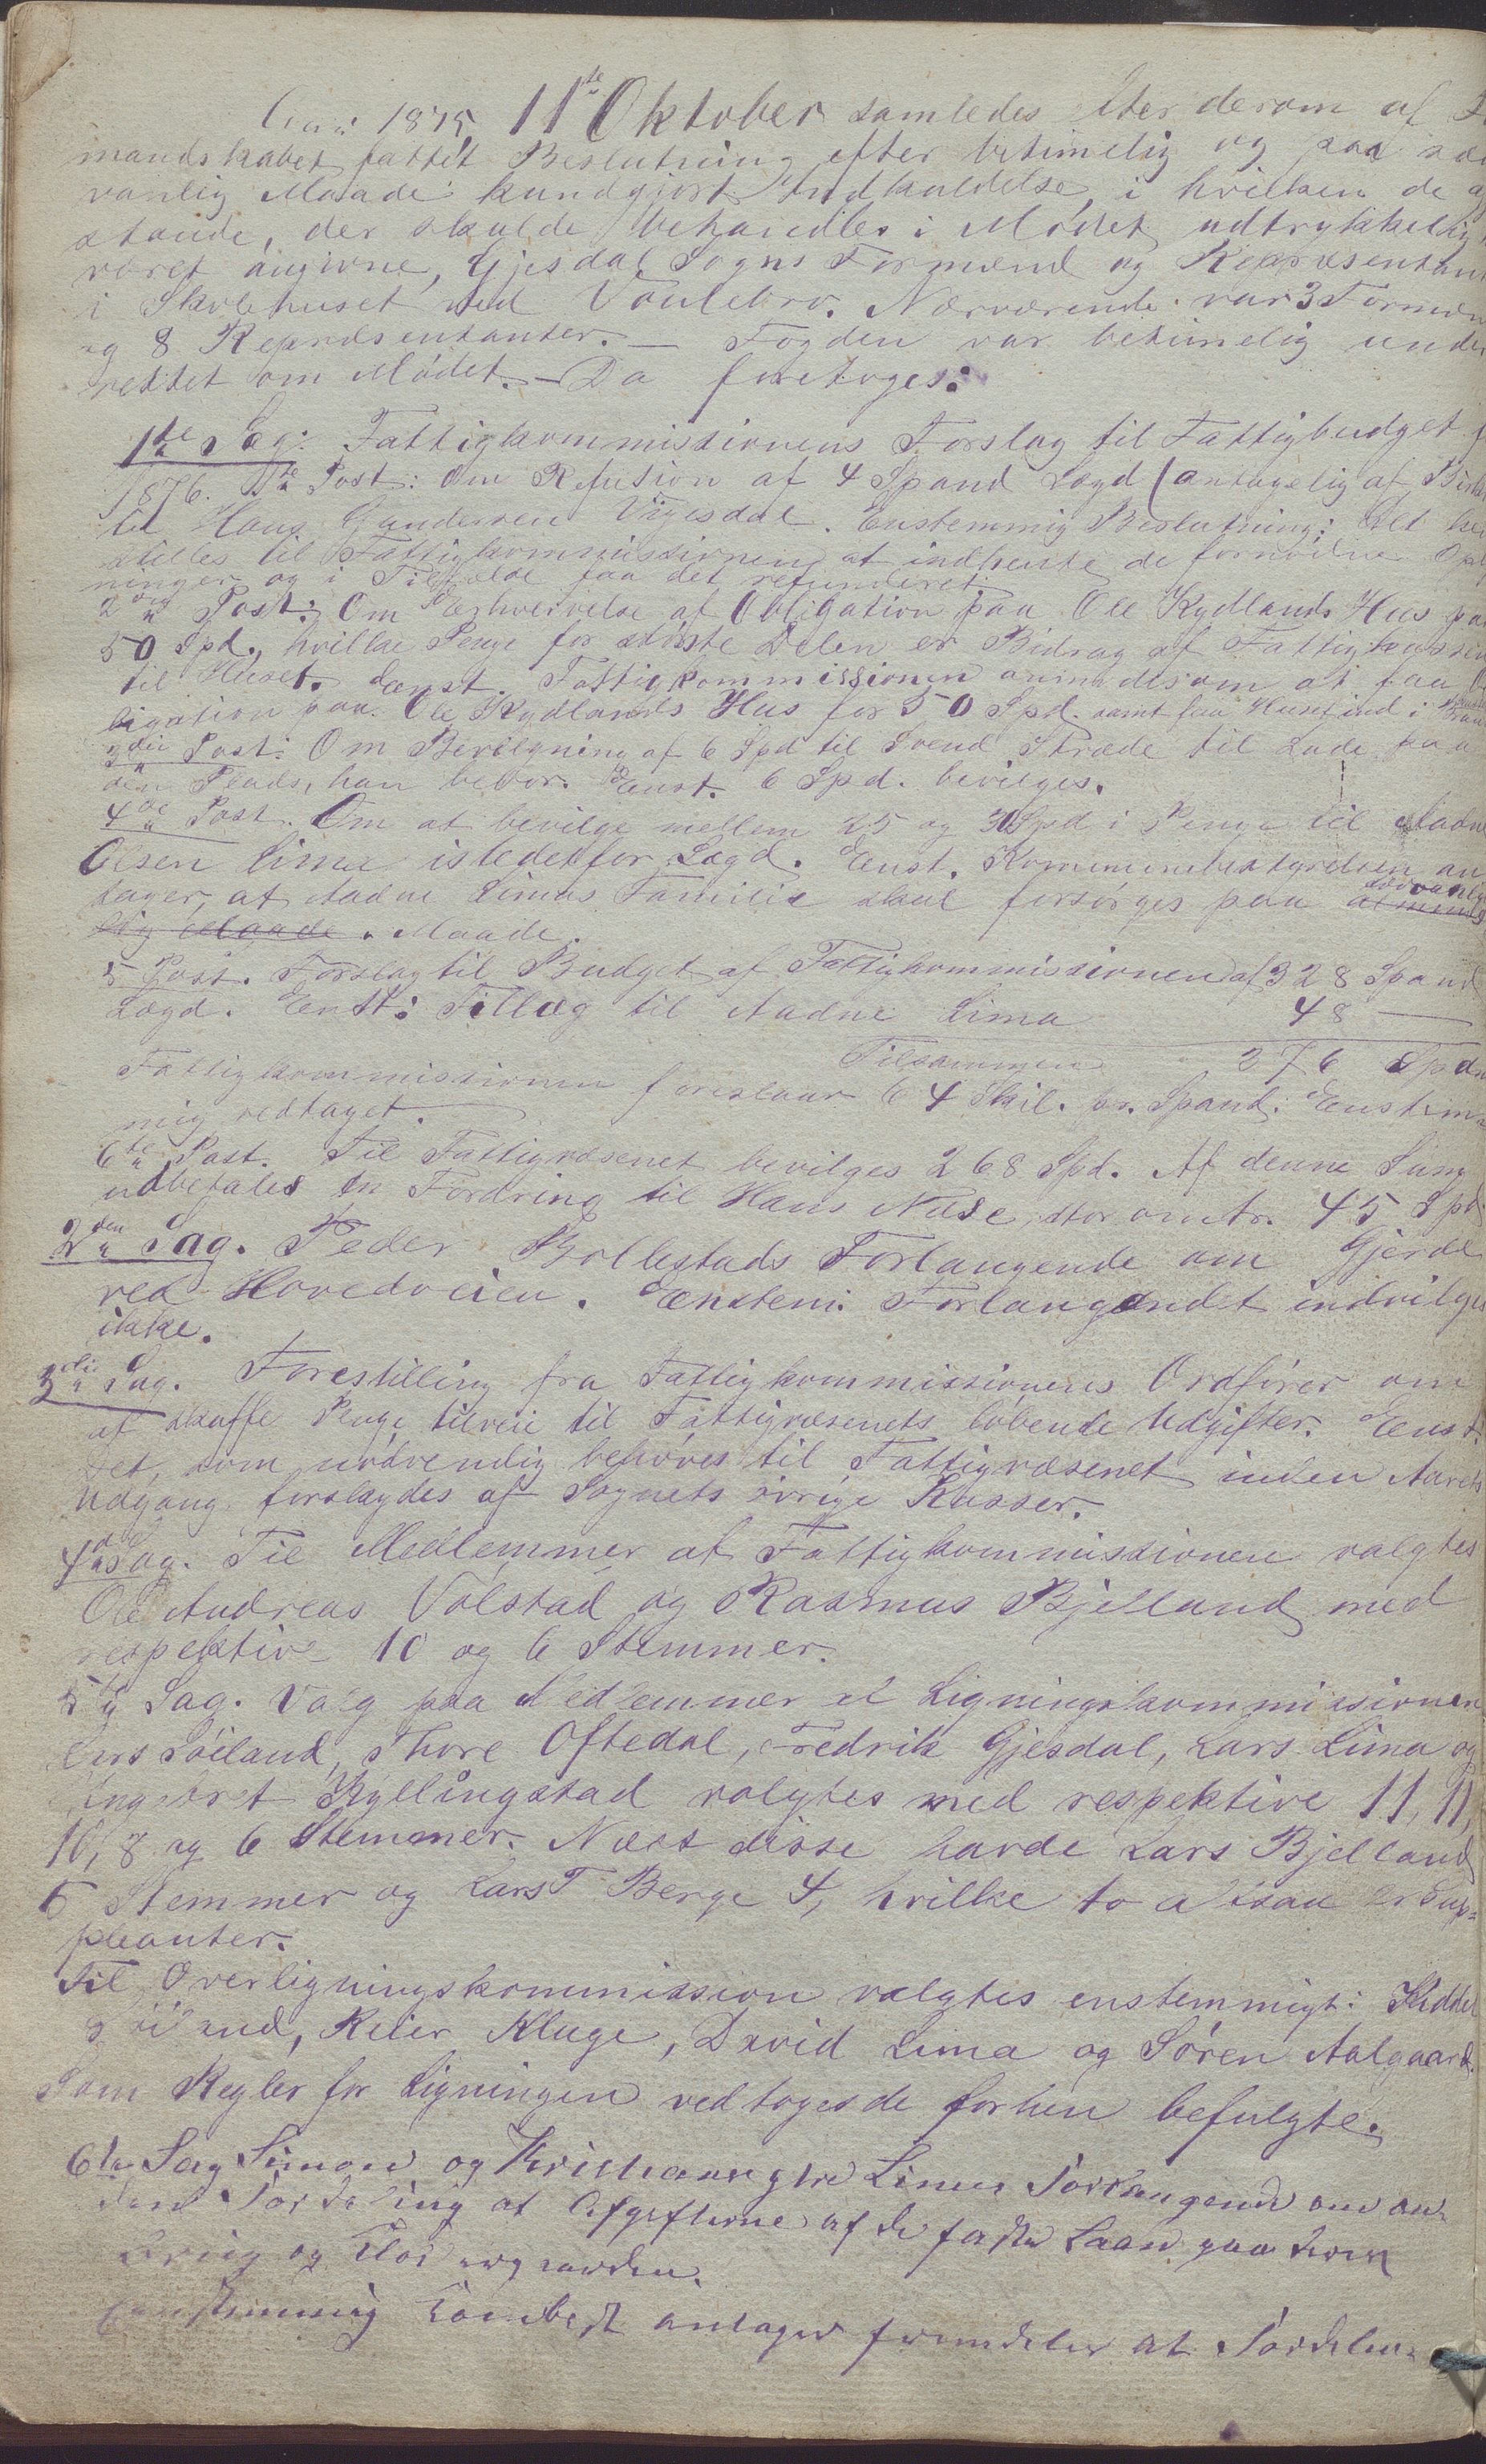 1875 11te Oktober samledes efter derom af
mandskabet fattet Beslutning efter betimelig og paa sæd
vanlig Maade kundgjort Indkaldelse, i hvilken de
stande, der skulde behandles i Mödet udtrykkelig
været angivne, Gjesdal Sogns Formænd og Repræsentant
i Skolehuset ved Voulebro. Nærværende var 3 Formæn
og 8 Repræsentanter. — Fogden var betimelig under
rettet om Mödet. — Da foretoges:
1te Sag: Fattigkommissionens Forslag til Fattigbudget f
1876. 1te Post: Om Refusion af 4 Spand Lægd (antagelig af
til Hans Gundersen Vigesdal. Enstemmig Beslutning: Det hen
stilles til Fattigkommissionen at indhente de fornödne Opl
ninger og i Tilfælde faa det refunderet.
2den Post: Om Erhvervelse af Obligation paa Ole Kydlands Hus paa
50 Spd., hvilke Penge for störste Delen er Bidrag af Fattigkassen
til Huset. Eenst. Fattigkommissionen anmodes om at faa O
ligation paa Ole Kydlands Hus for 50 Spd. samt faa Huset ind i
3die Post: Om Bevilgning af 6 Spd til Svend Stræde til Lade paa
den Plads, han bebor. Eenst. 6 Spd. bevilges.
4de Post. Om at bevilge mellem 25 og 30 Spd i Penge til Aadne
Olsen Lima istedetfor Lægd. Eenst. Kommunebestyrelsen an
tager, at Aadne Limas Familie skal forsörges paa sædvanlig almind
lig Maade. Maade.
5 Post. Forslag til Budget af Fattigkommissionen af 328 Spand
Lægd. Eenst: Tillæg til Aadne Lima 48 —
Tilsammen 376 Spd
Fattigkommissionen foreslaar 64 Skil. pr. Spand. Eenstem=
mig vedtaget.
6te Post. Til Fattigvæsenet bevilges 268 Spd. Af denne Sum
udbetales en Fordring til Hans Næse, stor omtr. 45 Spd
2den Sag. Peder Bollestads Forlangende om Gjerde
ved Hovedveien. Eenstem: Forlangendet indvilges
ikke.
3die Sag. Forestilling fra Fattigkommissionens Ordförer om
at skaffe Penge tilveie til Fattigvæsenets löbende Udgifter. Eenst.
Det, som nödvendig behöves til Fattigvæsenet inden Aarets
Udgang forskydes af Sognets övrige Kasser.
4de Sag. Til Medlemmer af Fattigkommissionen valgtes
Ole Andreas Völstad og Rasmus Bjelland med
respektive 10 og 6 Stemmer.
5te Sag. Valg paa Medlemmer af Ligningskommissionen
Lars Söiland, Thore Oftedal, Fredrik Gjesdal, Lars Lima og
Engebret Kyllingstad valgtes med respektive 11, 11,
10, 8 og 6 Stemmer. Næst disse havde Lars Bjelland
5 Stemmer og Lars T Berge 4, hvilke to altsaa er Sup=
pleanter.
Til Overligningskommission valgtes enstemmigt: Kiddel
Söiland, Reier Kluge, David Lima og Sören Aalgaard.
Som Regler for Ligningen vedtoges de forhen befulgte.
6te Sag Simon og Kristian Limas Forlangende om an=
den Fordeling af Afgifterne af de faste Laan paa
og
Eenstemmig antager fremdeles at Fordelin=